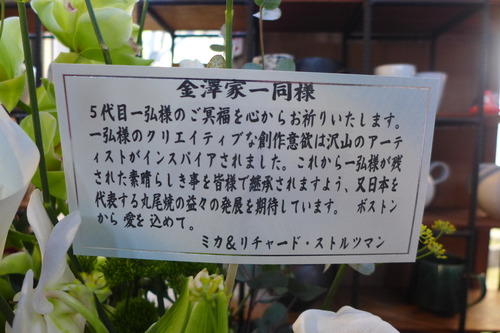 金澤家一同様
5代目一弘様のご冥福を心からお祈りいたします。
一弘様のクリエイティブな創作意欲は沢山のアーテ
ィストがインスパイアされました。これから一弘様が残
された素晴らしき事を皆様で継承されますよう、又日本を
代表する丸尾焼の益々の発展を期待しています。 ボストン
から 愛を 込めて。
ミカ＆リチャード・ストルツマン